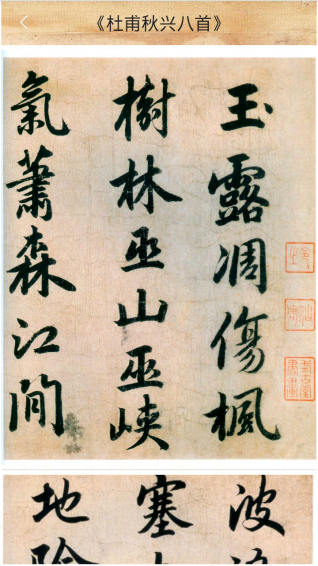 《杜甫秋兴八首》
玉露凋傷楓
樹林巫山巫峽
氣蕭森江間
波
塞
地